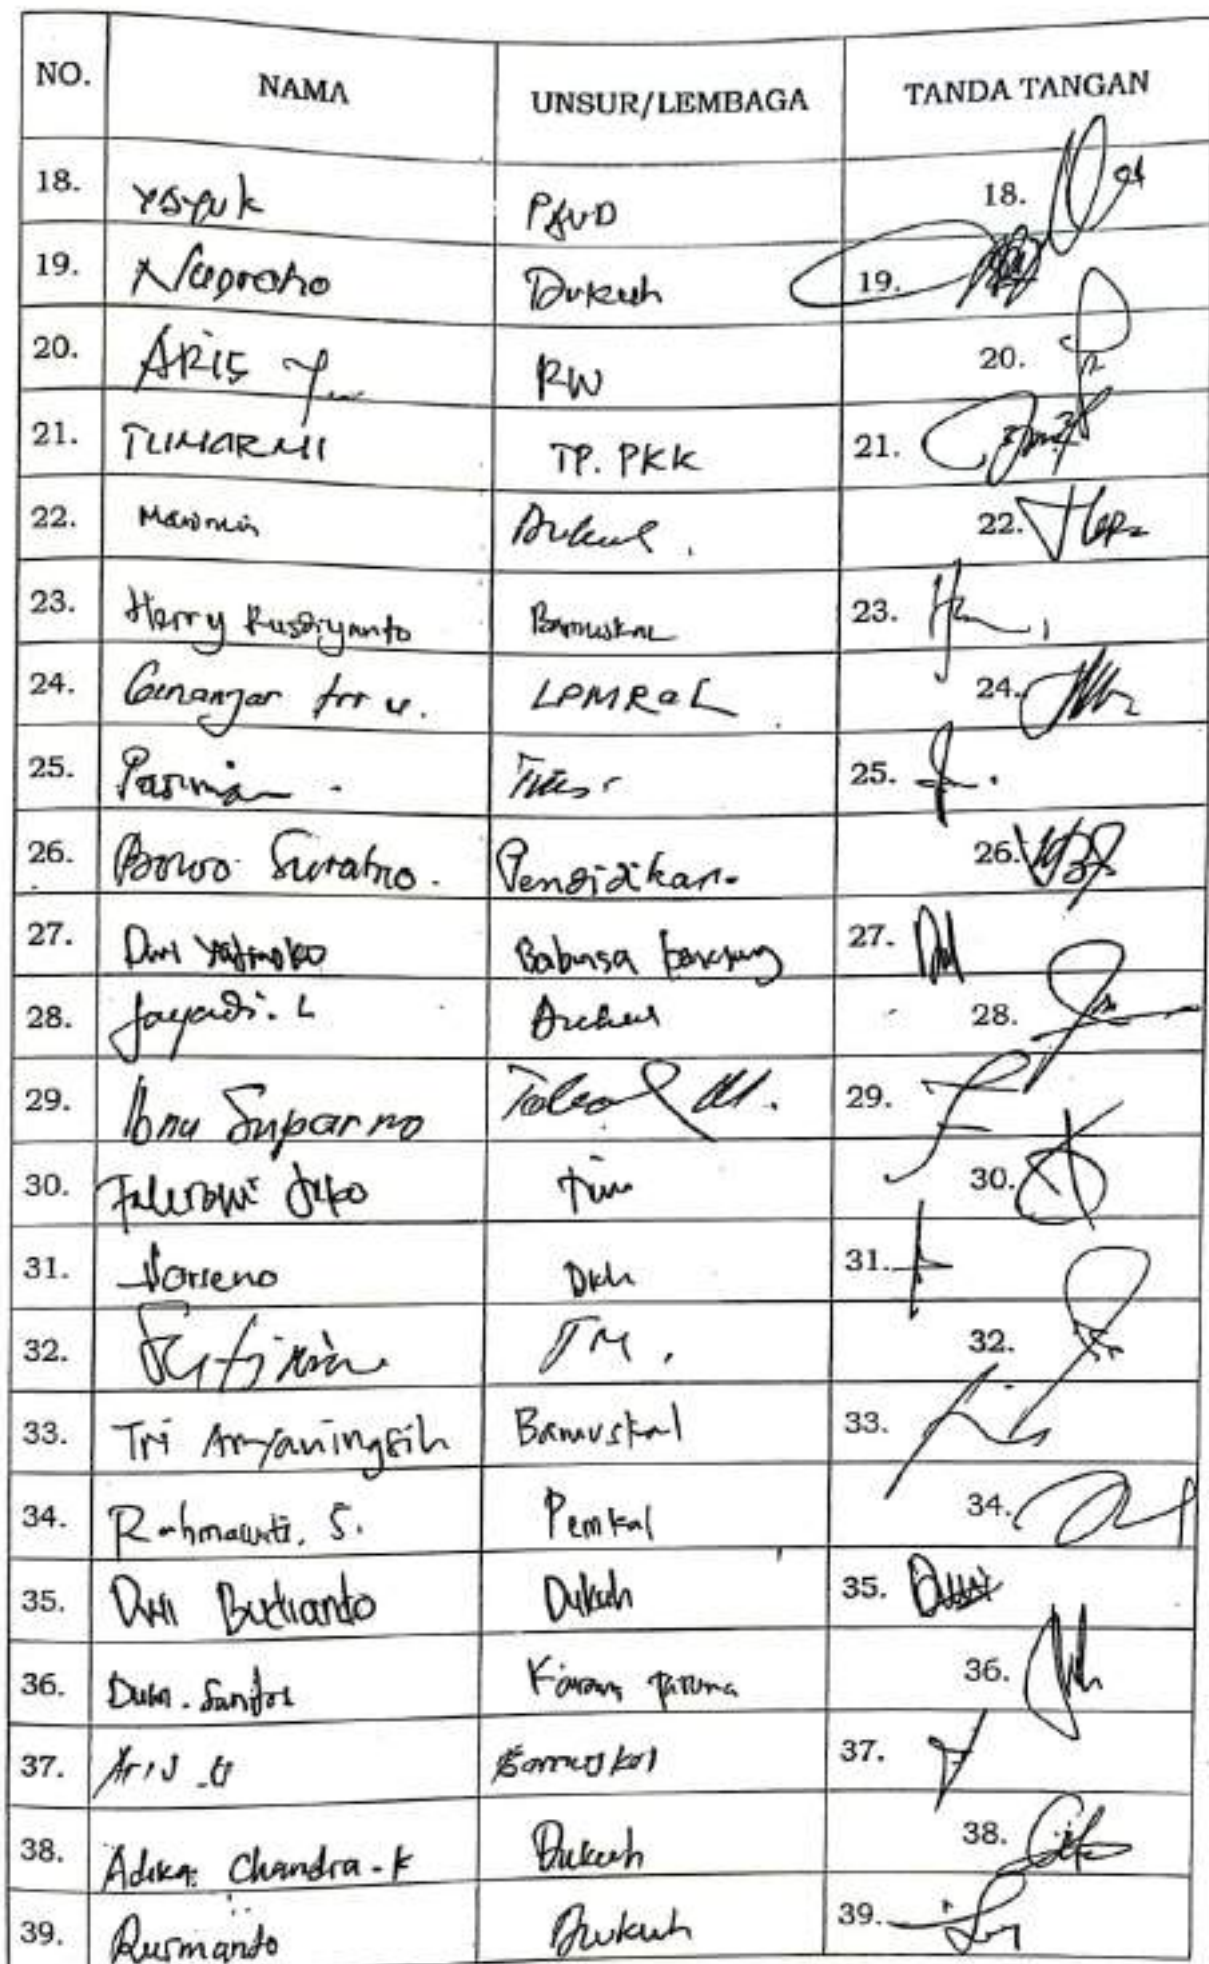 NO. NAMA UNSUR/LEMBAGA TANDA TANGAN
18. Yayuk PAUD 18.
19. Nugroho Dukuh 19.
20. ARIS RW 20.
21. TUMARMI TP. PKK 21.
22. Dukuh. 22.
23. Herry Rusdiyanto Bamuskal 23.
24. Genanjar Tri W. LPMKaL 24.
25. Parmin. 25.
26. Bowo Suratno. Pendidikan. 26.
27. Dwi Babinsa 27.
28. Jayadi. L Dukuh 28.
29. Ibnu Suparno 29.
30. 30.
31. Dkh 31.
32. TM. 32.
33. Tri Aryaningsih Bamuskal 33.
34. Rahmawati. S. Pemkal 34.
35. Dwi Budianto Dukuh 35.
36. Karang Taruna 36.
37. Aris .G Bamuskal 37.
38. Adika Chandra-K Dukuh 38.
39. Rusmanto Dukuh 39.